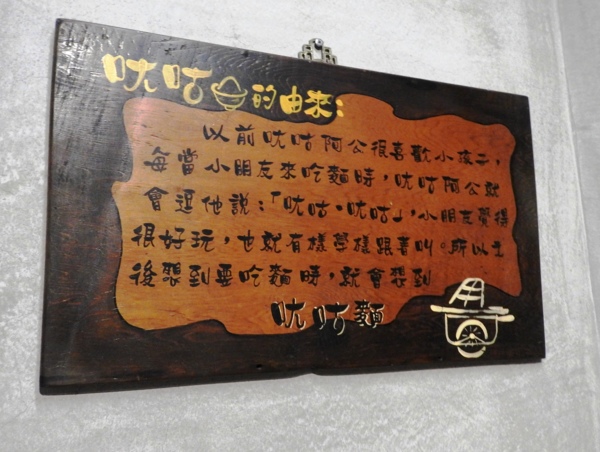 呅咕的由來:
以前呅咕阿公很喜歡小孩子,
每當小朋友來吃麵時,呅咕阿公就
會逗他說:「呅咕,呅咕」,小朋友覺得
很好玩,也就有樣學樣跟著叫。所以士
後想到要吃麵時,就會想到
呅咕麵